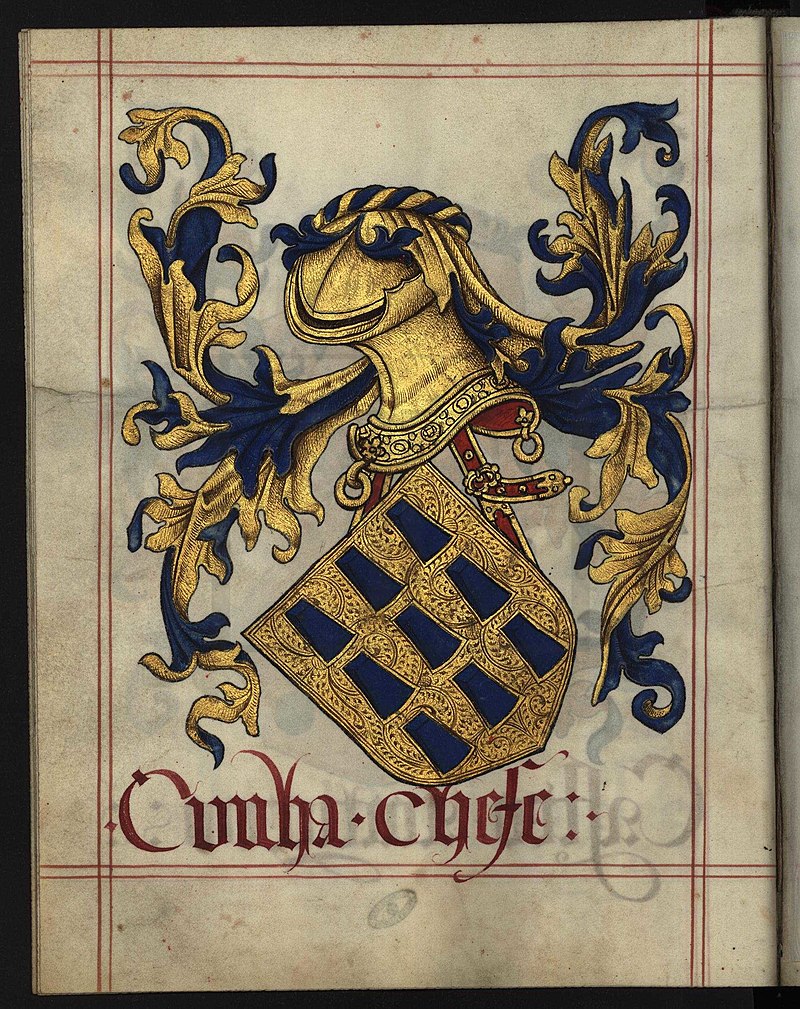 Cunha · chefe :·